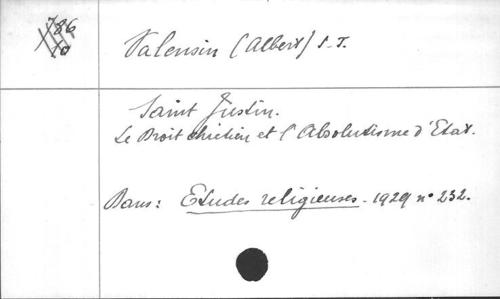 786
10
Valensin (Albert) S.J.
Saint Justin.
Le Droit chrétien et l'Absolutisme d'Etat.
Dans: Etudes religieuses - 1929 n° 232.